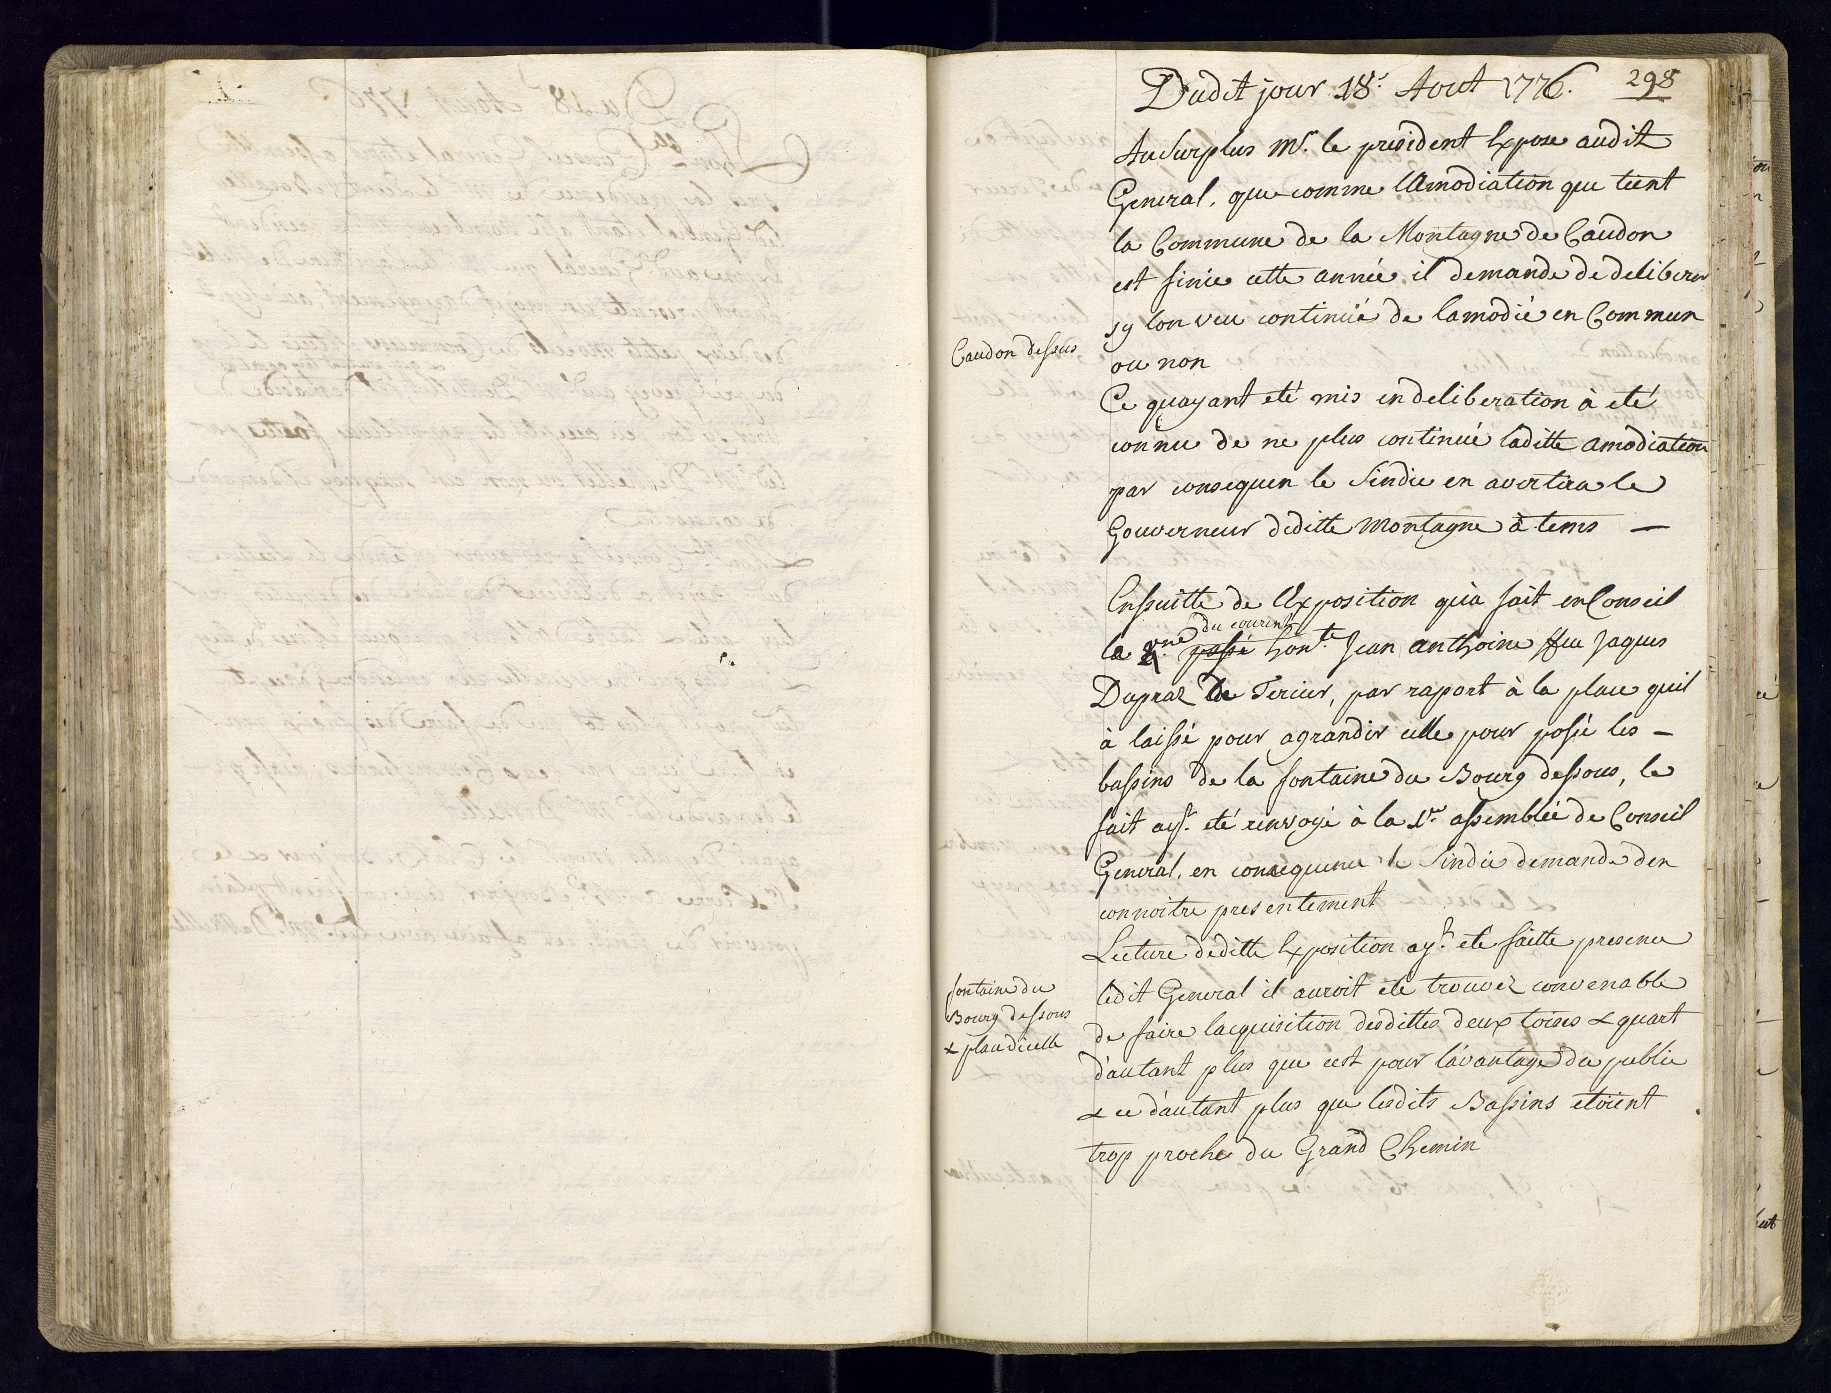 Dudit jour 18.e Aout 1776. 298
Au Surplus Mr. le president Expose audit
General, que comme l'Amodiation que tient
la Commune de la Montagne de Caudon
est finie cette année il demande de deliberer
sy lon veu continüé de lamodié en Commun
ou non
Caudon dessus
Ce quayant eté mis en deliberation à eté
connu de ne plus continué laditte amodiation
par consequen le Sindic en avertira le
Gouverneur deditte Montagne à tems —
Ensuitte de l'Exposition qu'a fait en Conseil
du courent
la passé hon.te Jean anthoine ffeu Jaques
Dupraz de Tercier, par raport à la place quil
à laissé pour agrandir celle pour posée les —
bassins de la fontaine du Bourg dessous, le
fait ayt. eté renvoyé à la 1re. assemblée de Conseil
General, en consequence le Sindic demande den
connoitre presentement
Lecture deditte Exposition ayt. eté faitte presence
ledit General il auroit ete trouvez convenable
fontaine du
Bourg dessous
& place dicelle
de faire lacquisition desdittes deux toises & quart
d'autant plus que cest pour l'avantage du public
& ce d'autant plus que lesdits Bassins etoient
trop proche du Grand Chemin